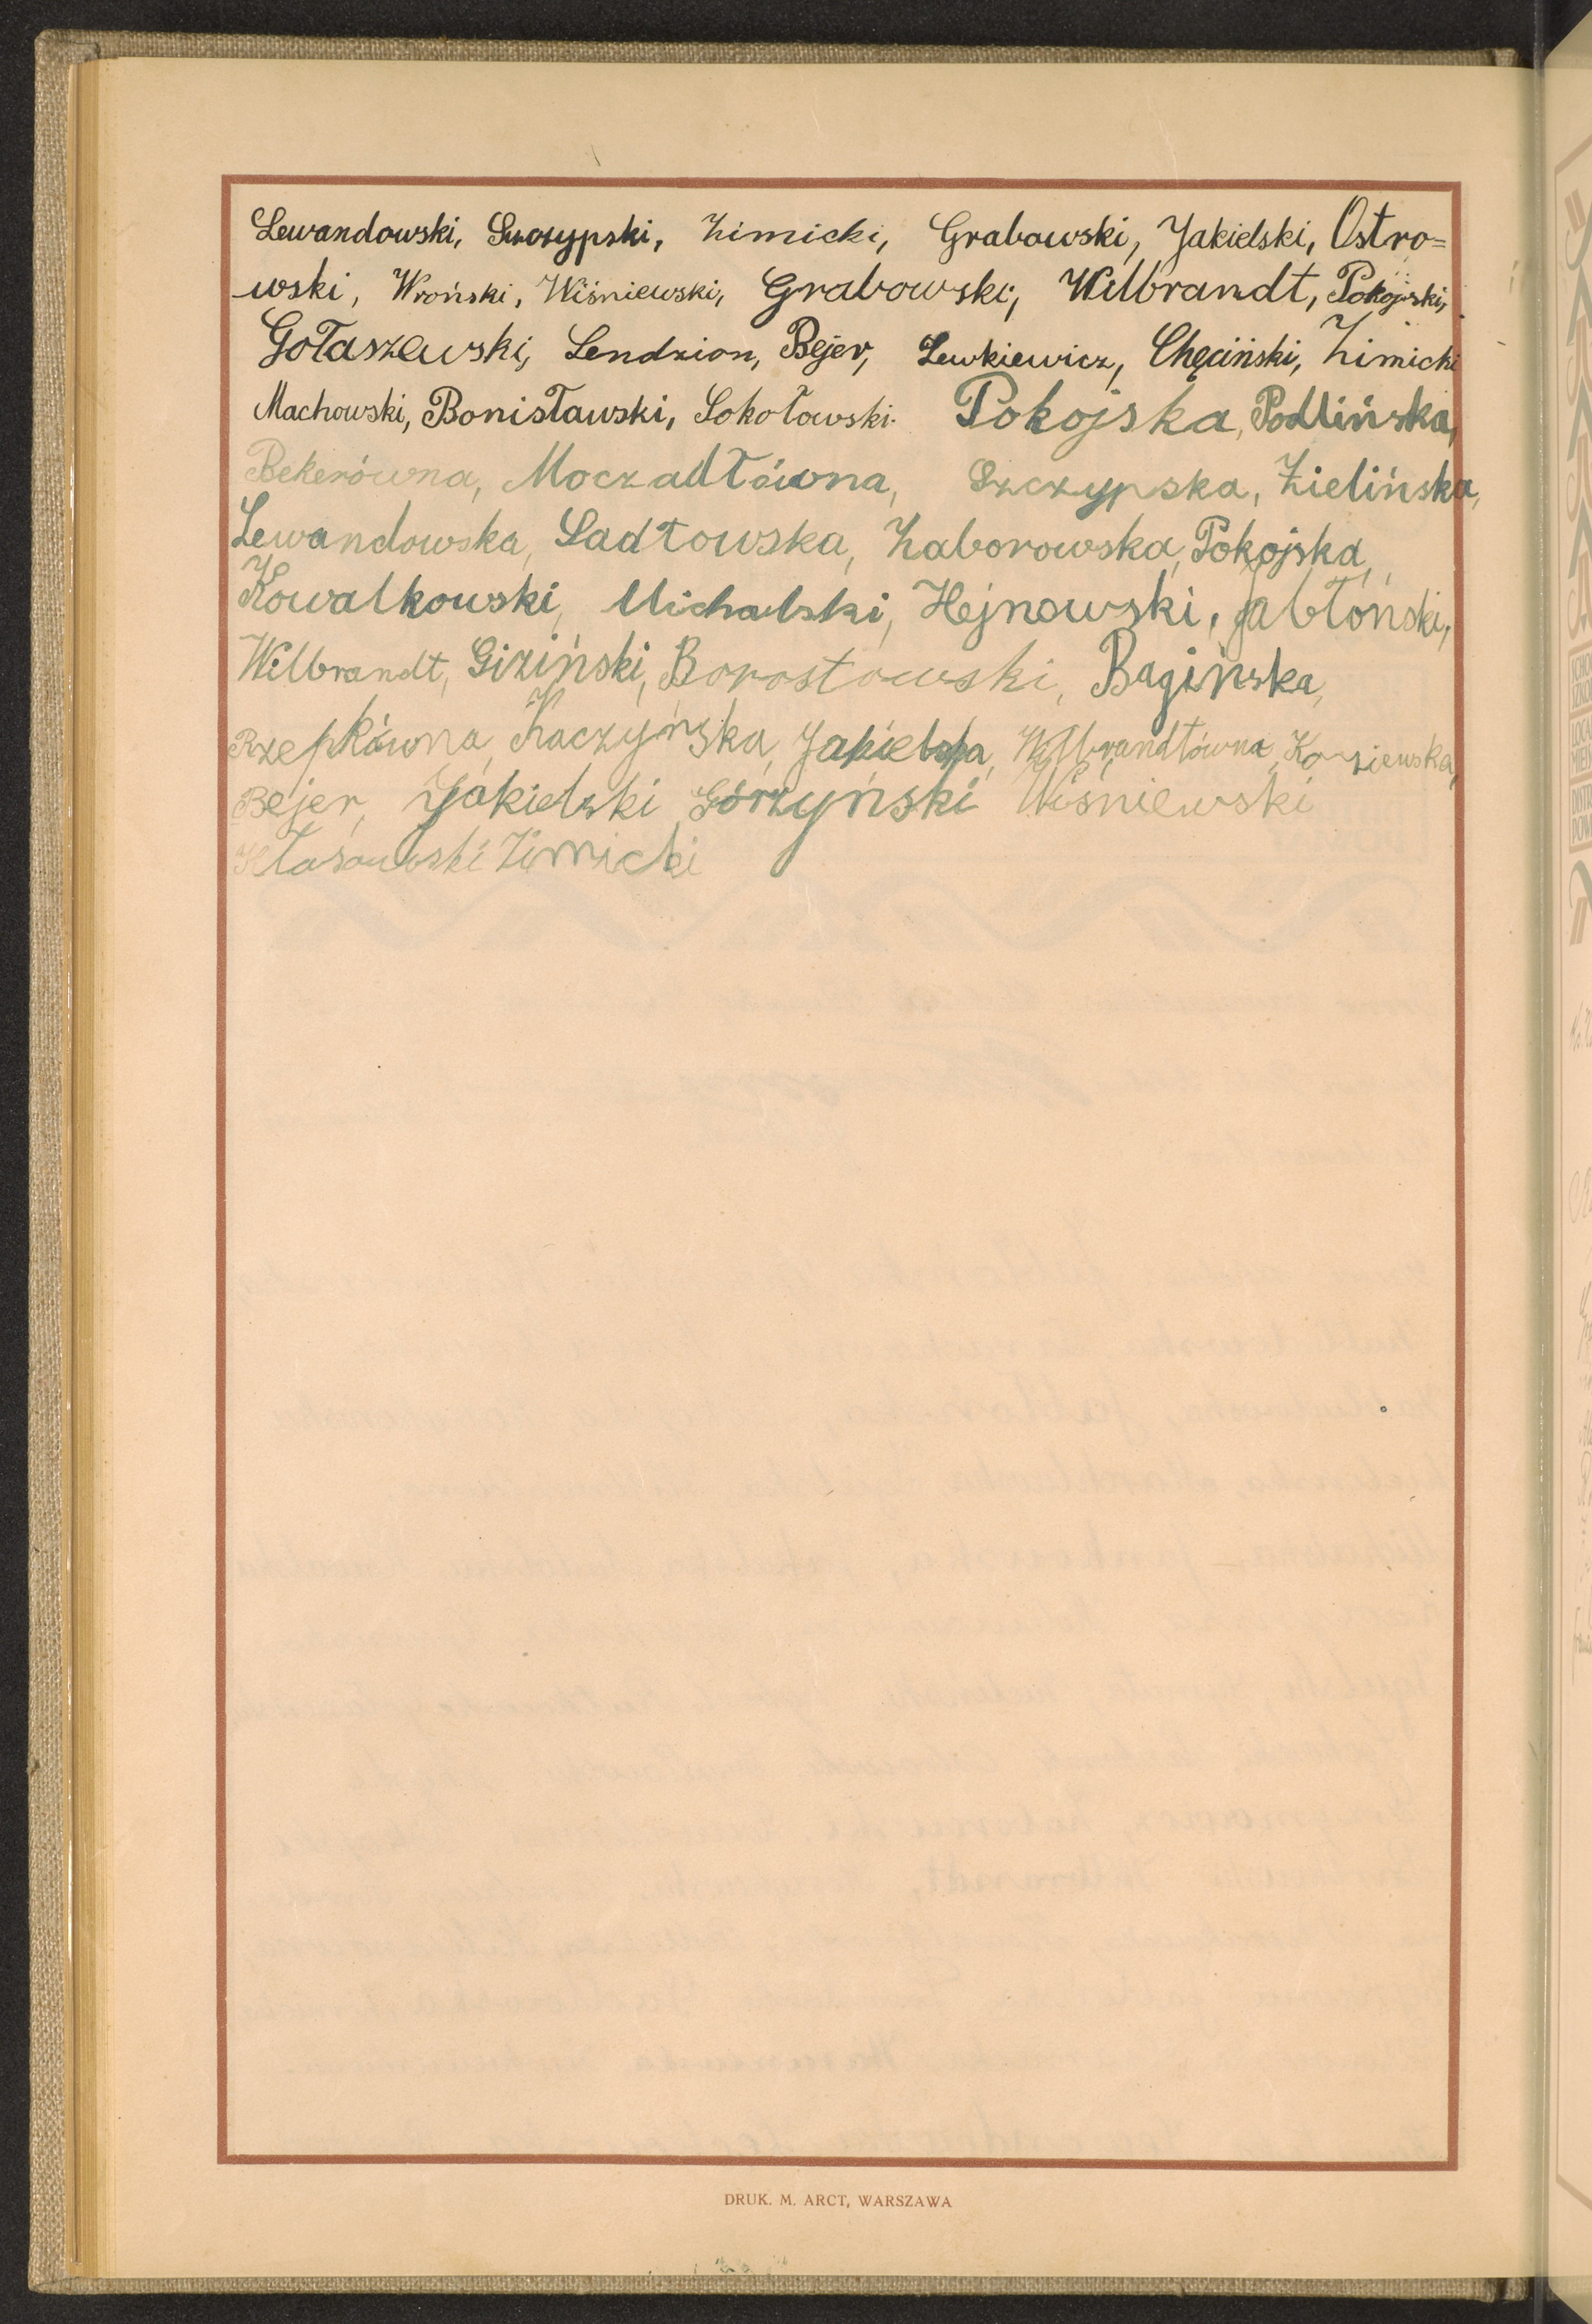 Lewandowski, Szczypski, Zimicki, Grabowski, Jakielski, Ostro=
wski, Wroński, Wiśniewski, Grabowski, Wilbrandt, Pokojski,
Gołaszewski, Lendzion, Bejer, Lewkiewicz, Chęciński, Zimicki
Machowski, Bonisławski, Sokołowski. Pokojska, Podlińska,
Bekerówna, Moczadłówna, Szczypska, Zielińska,
Lewandowska, Sadłowska, Zaborowska, Pokojska,
Kowalkowski, Michalski, Hejnowski, Jabłoński,
Wilbrandt, Giziński, Borostowski, Bagińska,
Rzepkówna, Kaczyńska, Jakielska, Wilbrandtówna, Koziewska,
Bejer, Jakielski, Górzyński Wiśniewski
Zimicki
DRUK. M. ARCT, WARSZAWA